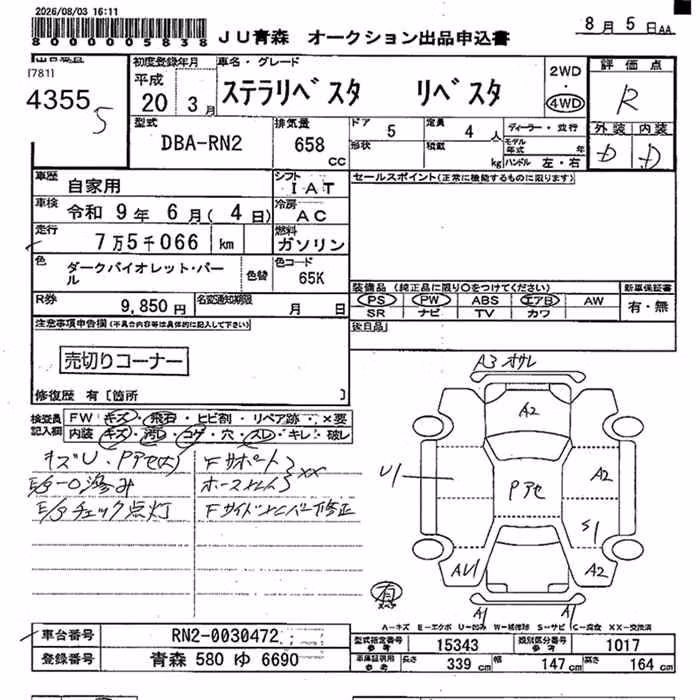 2026/08/03 16:11
8000005838
JU青森 オークション出品申込書
8月5日AA
[781]
43555
初度登録年月
平成
20 3月
車名・グレード
ステラリベスタ リベスタ
2WD
・
4WD
評価点
R
外装 内装
D D
型式
DBA-RN2
排気量
658 CC
ドア 5
定員 4人
形状
積載 kg
ディーラー・並行
モデル年式 年
ハンドル 左・右
車歴
自家用
シフト
IAT
セールスポイント(正常に機能するものに限ります)
車検
令和 9年 6月( 4日)
冷房
AC
走行
7万5千066 km
燃料
ガソリン
色
ダークバイオレット・パール
色替
色コード
65K
装備品(純正品に限り○をつけてください)
新車保証書
PS PW ABS エアB AW
SR ナビ TV カワ
有・無
R券
9,850円
名変通知期限
月 日
後自品
注意事項申告欄(不具合内容等は具体的に記入して下さい)
売切りコーナー
修復歴 有[箇所 ]
検査員記入欄
FW キズ・飛石・ヒビ割・リペア跡・×要
内装 キズ・汚レ・コゲ・穴・スレ・キレ・破レ
キズU、Pアセ(大)
Fサポート
××
E/Gチェック点灯
A3
A2
U1
Pアセ
A2
S1
A2
A1
A1
有
A-キズ E-エクボ U-凹み W-補修跡 S-サビ C-腐食 XX-交換済
車台番号
RN2-0030472
登録番号
青森 580 ゆ 6690
型式指定番号
参考
15343
類別区分番号
参考
1017
車庫証明用
参考
長さ 339 cm
幅 147 cm
高さ 164 cm